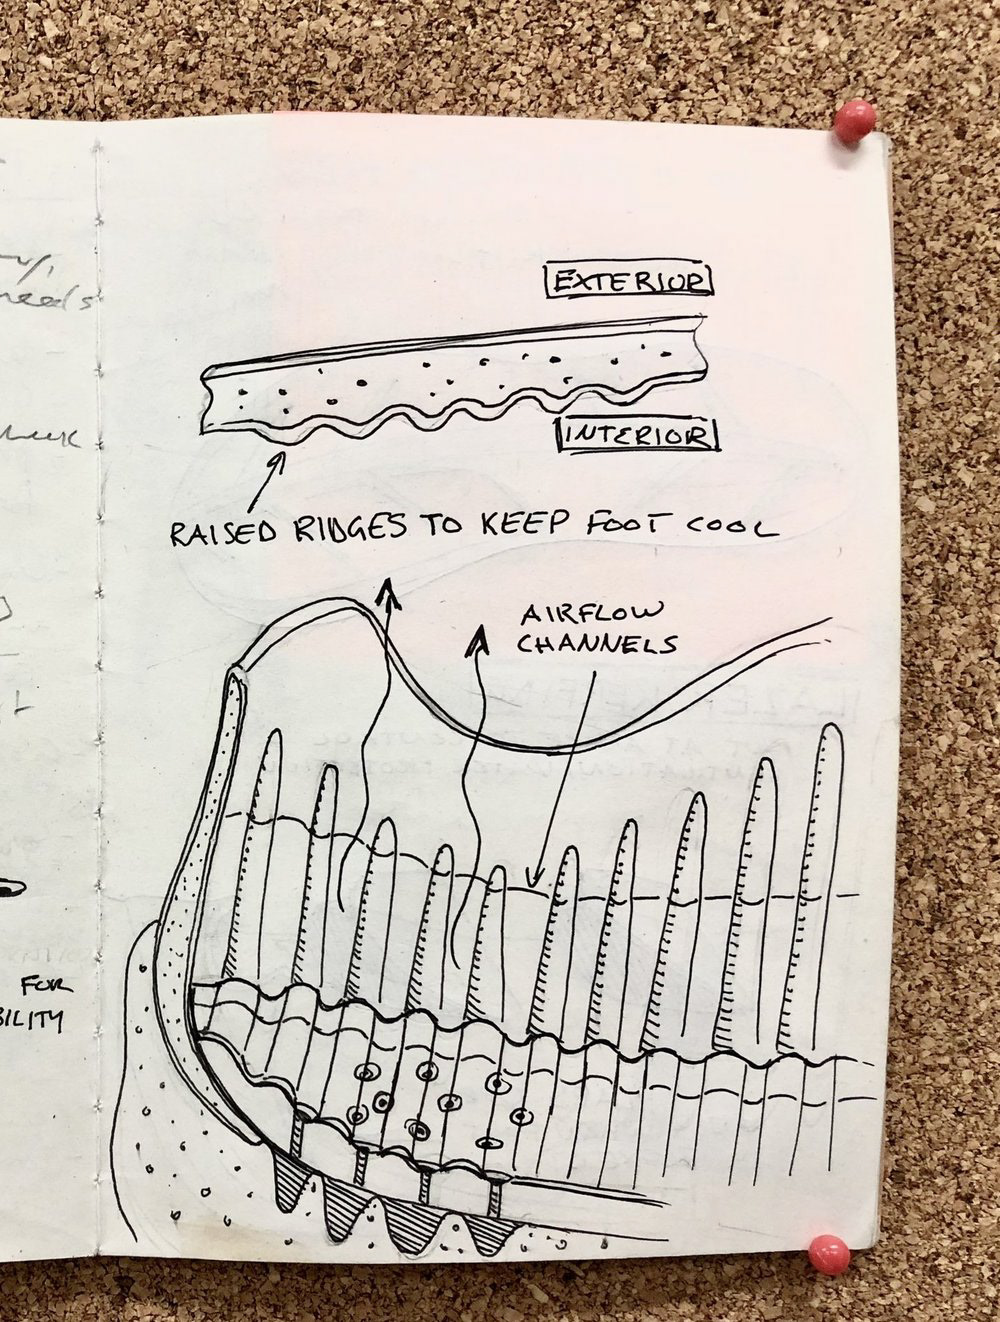 needs
EXTERIOR
INTERIOR
RAISED RIDGES TO KEEP FOOT COOL
AIRFLOW
CHANNELS
FOR
BILITY